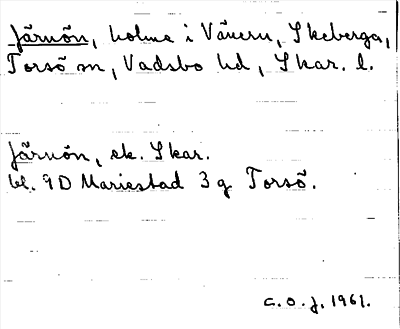 Järnön, holme i Vänern, Skeberga,
Torsö sn, Vadsbo hd, Skar. l.
Järnön, ek. Skar.
bl. 9D Mariestad 3 g Torsö.
C. O. J. 1961.